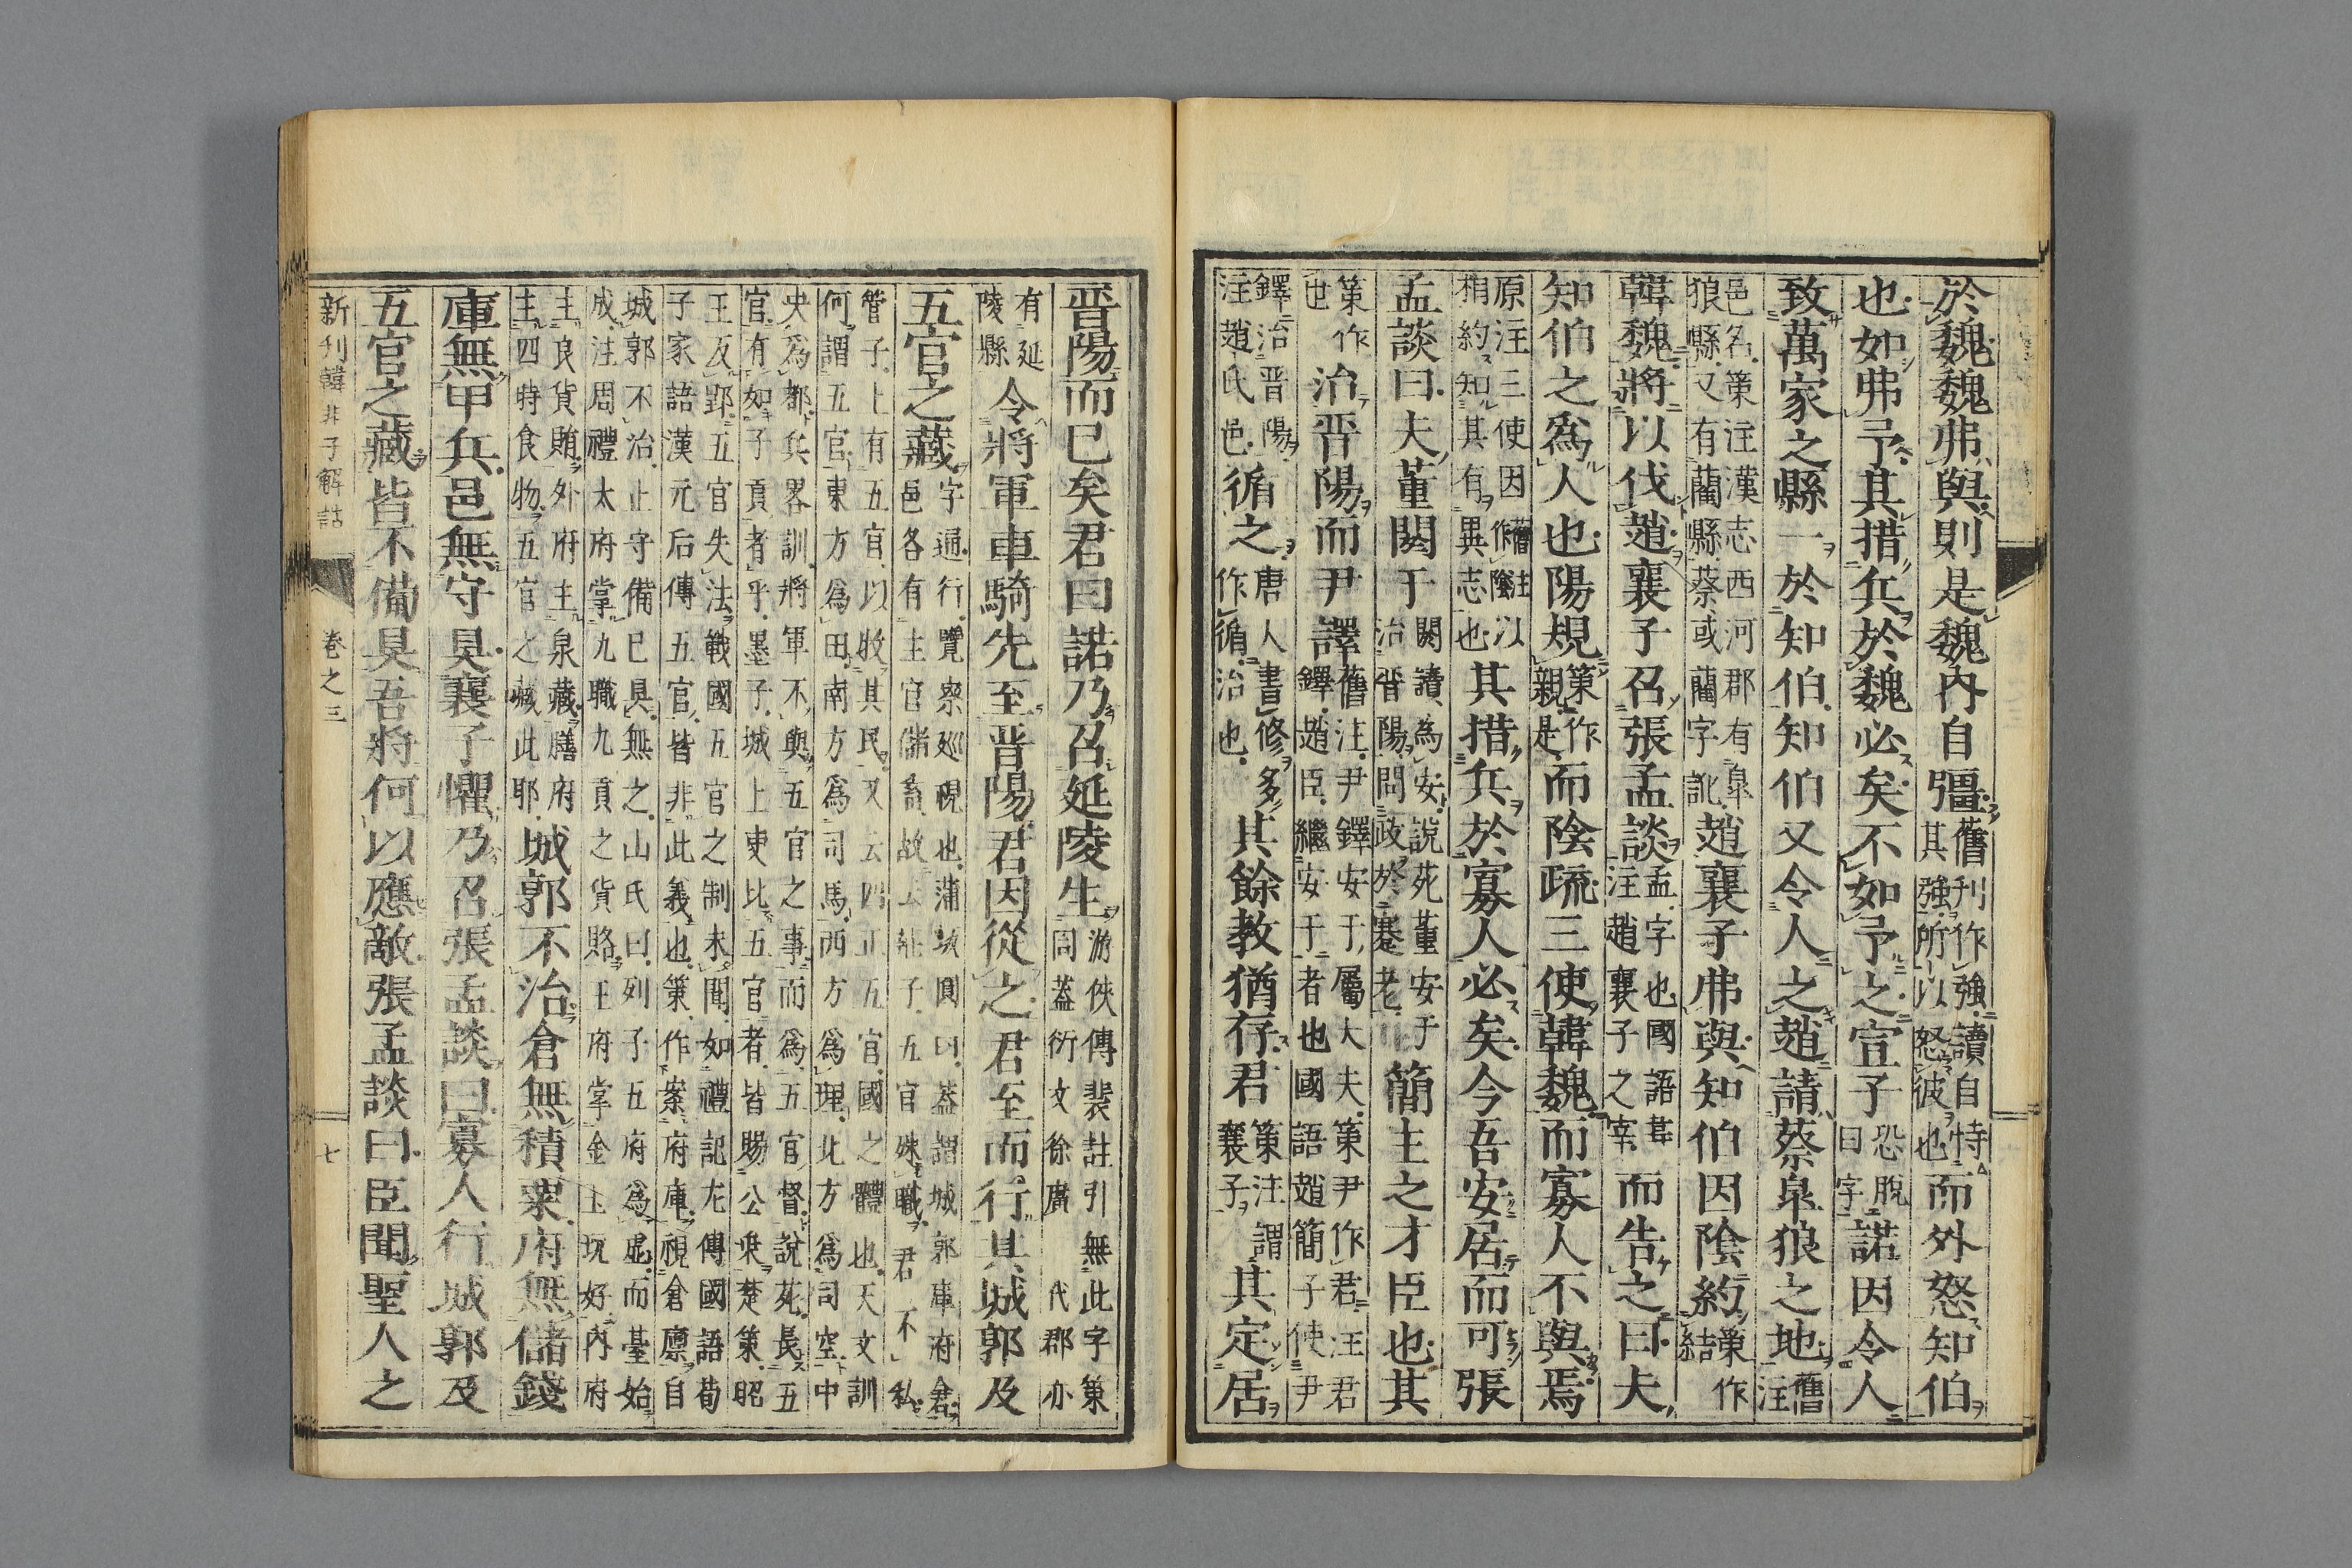 於魏魏弗與則是魏內自彊舊刋作強讀自恃其強所以怒彼也而外怒知伯
也如弗予其措兵於魏必矣不如予之宣子恐脫曰字諾因令人
致萬家之縣一於知伯知伯又令人之趙請蔡皐狼之地舊注
邑名策注漢志西河郡有皐狼縣又有藺縣蔡或藺字訛趙襄子弗與知伯因陰約策作結
韓魏將以伐趙襄子召張孟談孟字也國語葚注趙襄子之宰而告之曰夫
知伯之爲人也陽規策作親是而陰疏三使韓魏而寡人不與焉
原注三使因舊注作陰以相約知其有異志也其措兵於寡人必矣今吾安居而可張
孟談曰夫董閼于閼讀為安說苑董安于治晋陽問政於蹇老簡主之才臣也其
策作世治晋陽而尹譯舊注尹鐸安于屬大夫策尹作君注君鐸趙臣繼安于者也國語趙簡子使尹
鐸治晋陽注趙氏邑循之唐人書修多作循治也其餘教猶存君策注謂襄子其定居
晋陽而已矣君曰諾乃召延陵生游俠傳裴註引無此字策同蓋衍文徐廣代郡亦
有延陵縣令將軍車騎先至晋陽君因從之君至而行其城郭及
五官之藏字通行覽察廵視也蒲坂圓曰蓋謂城郭庫府倉邑各有主官儲畜故云子五官殊職君不私
管子上有五官以牧其民又云四正五官國之體也天文訓何謂五官東方爲田南方爲司馬西方爲理北方爲司空中
央爲都兵畧訓將軍不與五官之事而爲五官督說苑長五官有如子貢者乎墨子城上吏比五官者皆賜公乘楚策昭
王反郢五官失法戰國五官之制未聞如禮記左傳國語荀子家語漢元后傳五官皆非此義也策作案府庫視倉廪自
城郭不治止守備已具無之山氏曰列子五府爲虛而臺始成注周禮太府掌九職九貢之貨賂王府掌金玉玩好內府
主良貨賄外府主泉藏膳府主四時食物五官之藏此耶城郭不治倉無積粟府無儲錢
庫無甲兵邑無守具襄子懼乃召張孟談曰寡人行城郭及
五官之藏皆不備具吾將何以應敵張孟談曰臣聞聖人之
新刊韓非子解詁 卷之三 七